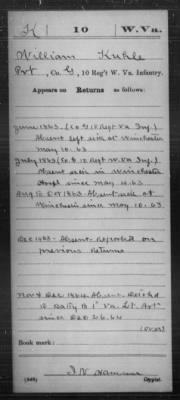 K 10 W.Va.
William Kuhle
Pvt, Co. G, 10 Reg't W. Va. Infantry.
Appears on Returns as follows:
June 1863. (Co G 10 Regt Va Inf.)
Absent left sick at Winchester
May 10. 63
July 1863 (Co G 10 Regt W. Va Inf.)
Absent sick in Winchester
since May 10. 63
Aug to Oct 1863. Absent sick at
Winchester since May 10. 63
Dec 1863. Absent. Reported on
previous Returns
Nov & Dec 1864. Absent. Det'chd
to Batty D 1" Va. Lt. Art'y
since Dec 26. 64
(over)
Book mark:
Copyist.